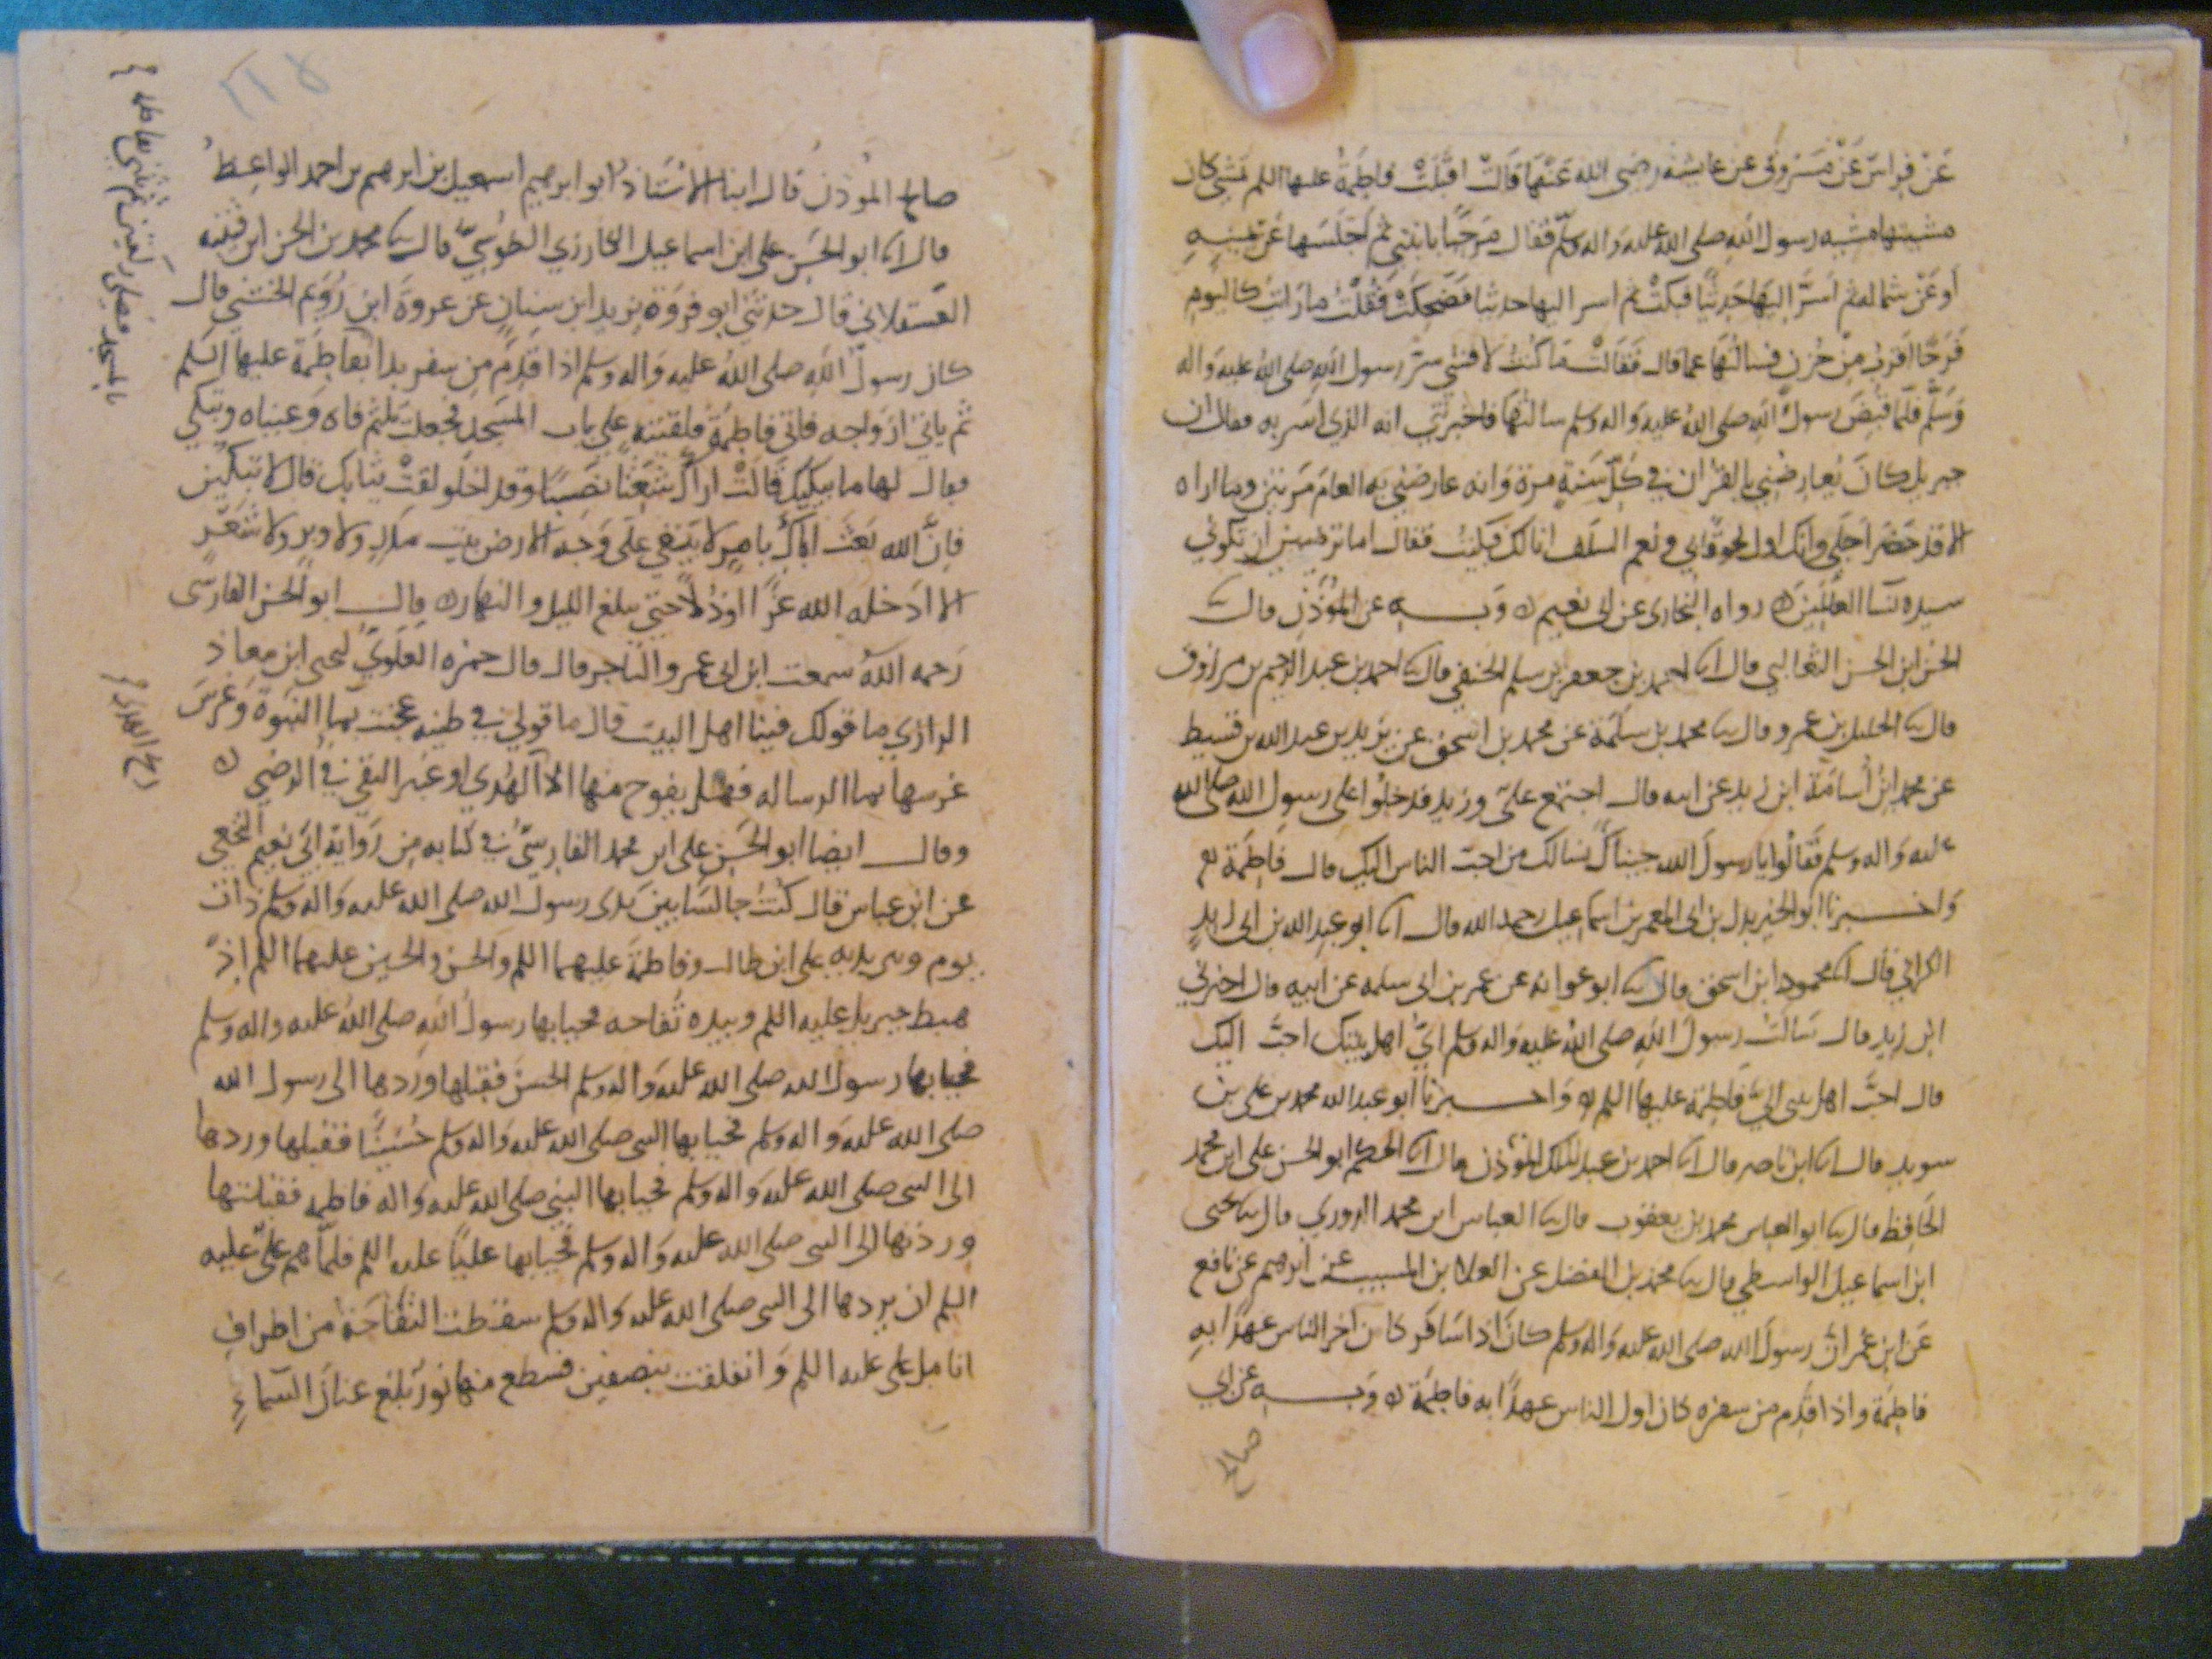 عَنْ فِراسٍ عَنْ مَسْرُوقٍ عن عايشه رضى الله عَنْهَا قَالَتْ اقبَلَتْ فاطِمَةُ عليها السلم تمشي كان
مشيتها مشيه رسول الله صلى الله عليه واله وسلّم فقال مَرحَبًا بابنتي ثم اجلَسَها عَنْ يمينِهِ
أو عَنْ شماله ثم اَسَرَّ اليها حَدِيثًا فبكَتْ ثم اسر اليها حديثا فضَحِكَتْ فَقُلْتُ ما رايتُ كاليومِ
فَرَحًا اقربَ مِنْ حُزنٍ فسالتُهَا عما قال فَقَالَتْ ما كُنتُ لافشي سرّ رسول الله صلى الله عليه واله
وَسَلّم فلمّا قُبِضَ رسول الله صلى الله عليه واله وسلم سالتُهَا فاخبرتني انه الذي اسَر به فقال ان
جبريل كانَ يُعارِضُنِي بالقران في كُلّ سَنةٍ مرة وَانه عارضني به العامَ مَرتين وما اراه
الا قد حَضَر اَجَلي وانك اول لحوقًا بي ونعم السَلَف انا لكِ فبكيتُ فقال اما ترضين ان تكوني
سيده نسا العالَمِين ٥ رواه البخارى عن ابى نعيم ٥ وَبـــه عن المؤذن قال ثنا
الحسن ابن الحسن الثعالبي قال انا احمد بن جعفر بن سلم الحنفي قال ثنا احمد بن عبد الرحيم بن مرزوق
قال ثنا الخليل بن عمرو قال ثنا محمد بن سلمة عن محمد بن اسحق عن يزيد بن عبد الله بن قسيط
عن محمد ابن أُسامَة ابن زيد عن ابيه قال اجتمع عليّ وزيد فدخلُوا على رسول الله صلى الله
عليه واله وسلم فَقَالُوا يا رسولَ الله جيناكَ نسالك من احبّ الناس اليك قال فاطِمَة نع
وَاخـــبرنا ابو الخير بدل بن ابى المعمر بن اسماعيل رحمه الله قال انا ابو عبد الله بن ابى زيدٍ
الكراني قال انا محمود ابن اسحق قال ثنا ابو عوانه عن عمر بن ابى سلمه عن ابيه قال اخبرني
ابن زيد قال سَالتُ رسول الله صلى الله عليه واله وسلم ايّ اهل بيتك احبّ اليك
قال احبّ اهل بيتى اليّ فاطِمَة عليها السلم ٥ وَاخـــبرنا ابو عبد الله محمد بن على بن
سويد قال انا ابن ناصر قال انا احمد بن عبد الملك المؤذن قال انا الحكم ابو الحسن على ابن محمد
الحَافظ قال ثنا ابو العباس محمد بن يعقوب قال ثنا العباس ابن محمد الدوري قال ثنا يحيى
ابن اسماعيل الواسطي قال ثنا محمد بن الفضل عن العلا بن المسيب عن ابرهيم عن نافع
عَن ابن عُمر انّ رسولَ الله صلى الله عليه واله وسلم كان اذا سَافَر كان آخر الناس عهدًا به
فاطِمَة واذا قدم من سفره كان اول الناس عهدًا به فاطِمَة ٥ وَبـــه عن ابي
صالح
صالح المؤذن قال انبا الاُسْتاذُ ابو ابرهيم اسمعيل بن ابرهيم بن احمد الواعظُ
قال انا ابو الحسَن على ابن اسماعيل الكارزي الطوسِيّ قال ثنا محمد بن الحسن ابن قتيبه
العَسقلاني قال حدثني ابو فروة يزيد ابن سِنانٍ عن عروة ابن رُويم الخشني قال
كان رسولُ الله صلى الله عليه واله وسلم اذا قَدِمَ من سفر بدا بفاطِمَة عليها السلم
ثم ياتي ازواجه فاتى فاطِمَة فلقيته على باب المسجد فجعلت تلثم فاه وَعيناه وتبكي
فقال لها ما يبكيك قَالَتْ اراك شَعِثًا نصَبًا وقد اخلولقتْ ثيابك قال لا تبكين
فاِنَّ الله بَعَثَ اباكِ بامرٍ لا يبقي على وَجه الارض بيت مَدَرٍ ولا وبرٍ ولا شَعَرٍ
الا ادخله الله عزًّا او ذُلاًّ حتى يبلغ الليل والنهار ٥ قال ابو الحسن الفارسى
رَحمه اللّه سمعت ابن ابى عمرو التاجر قال قال حمزه العَلَوِيّ ليحيى ابن معاذ
الرازي ما قولك فينا اهل البيت قال ما قولي في طينه عجنت بما النبوة وَغرس
غرسها بما الرساله فهل يفوح منها الا الهُدي او عنبر التقي في الرضي ٥
وقال ايضا ابو الحسَن على ابن محمد الفارسيّ في كتابه من رواية ابي نعيم النخعي
عن ابن عباس قال كُنتُ جالسًا بين يدى رسول الله صلى الله عليه واله وسلم ذات
يوم وبين يديه على ابن طالب وفاطمة عليهما السلم والحسن والحسين عليهما السلم اِذ
هبط جبريل عليه السلم وبيده تُفاحه فحيا بها رسول الله صلى الله عليه واله وسلم
فحيا بها رسول الله صلى الله عليه واله وسلم الحسن فقبلها ورَدها الى رسول الله
صلى الله عليه واله وسلم فحيا بها النبى صلى الله عليه واله وسلم حُسَينًا فقبلها وردها
الى النبى صلى الله عليه واله وسلم فحيا بها النبى صلى الله عليه واله فاطمه فقبلتها
وردتها الى النبى صلى الله عليه واله وسلم فحيا بها عليًا عليه السلم فلمّا همّ عليّ عليه
السلم ان يردها الى النبى صلى الله عليه واله وسلم سقطت التفاحة من اطراف
انامل على عليه السلم وانفلقت بنصفين فسطع منها نور بَلَغ عنانَ السَماءِ
بالمسجد فصلى ركعتين ثم يثني بفاطمه